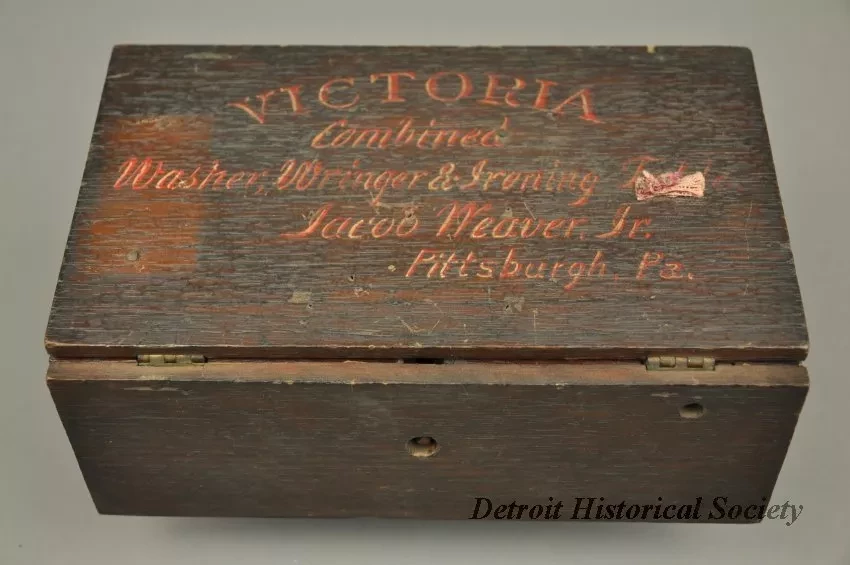 VICTORIA
Combined
Washer, Wringer & Ironing
Jacob Weaver, Jr.
Pittsburgh, Pa.
Detroit Historical Society